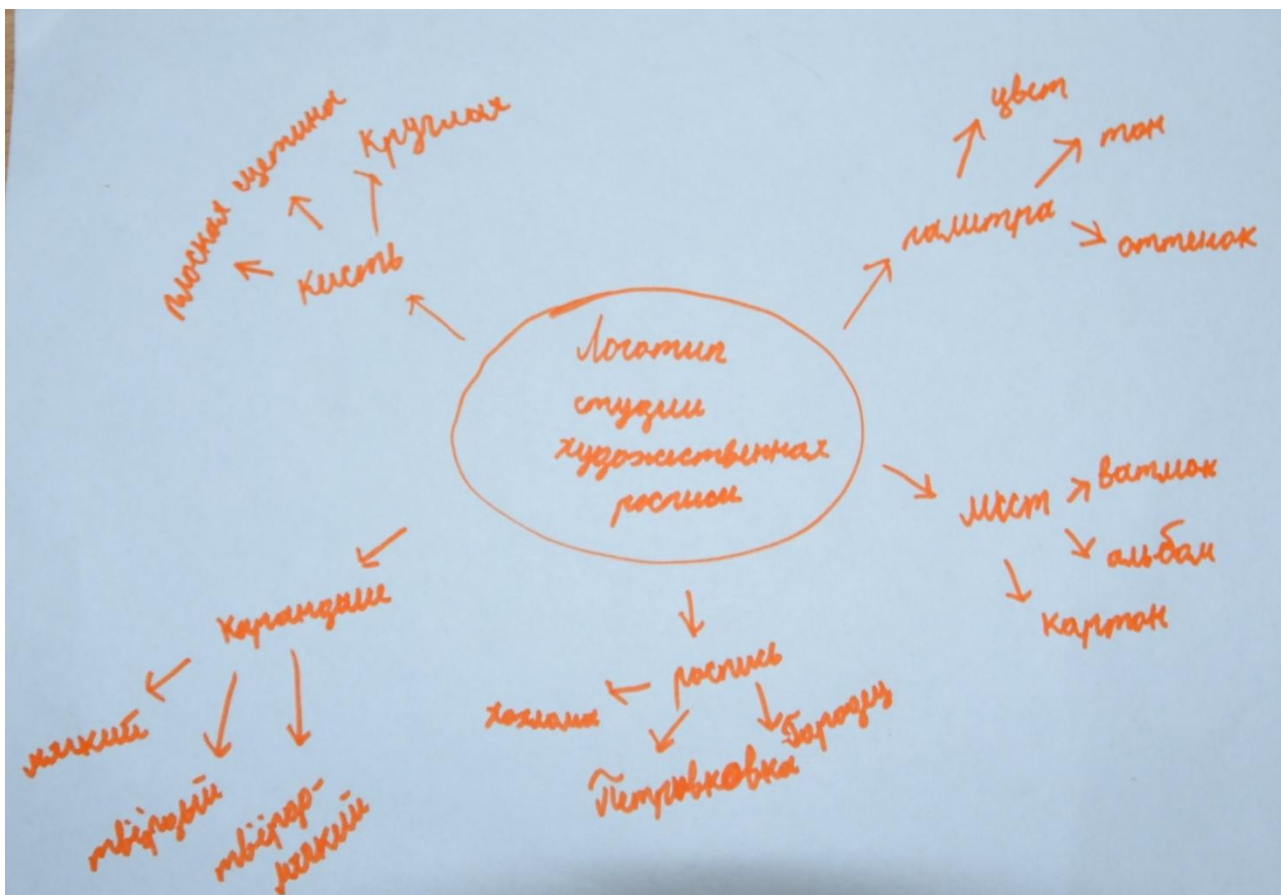 Логотип
студии
художественная
росписи
кисть
плоская
щетина
круглая
палитра
цвет
тон
оттенок
лист
ватман
альбом
картон
роспись
хохлома
Петриковка
Городец
карандаш
мягкий
твёрдый
твёрдо-
мягкий